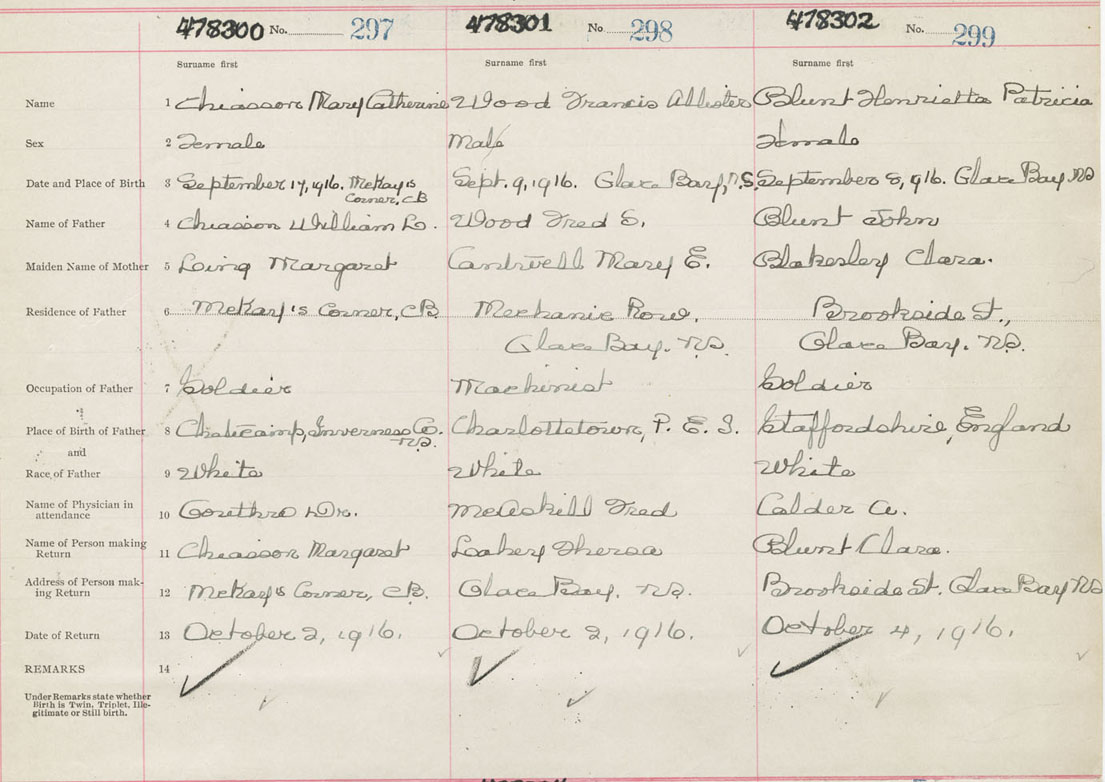 478300 No. 297 478301 No 298 478302 No. 299
Surname first Surname first Surname first
Name 1 Chiasson Mary Catherine Wood Francis Allister Blunt Henrietta Patricia
Sex 2 Female Male Female
Date and Place of Birth 3 September 17, 1916. McKay's Sept. 9, 1916. Glace Bay, N.S. September 8, 1916. Glace Bay NS
Corner, CB
Name of Father 4 Chiasson William L. Wood Fred S. Blunt John
Maiden Name of Mother 5 Long Margaret Cantwell Mary E. Blakesley Clara.
Residence of Father 6 McKay's Corner, CB. Mechanic Row, Brookside St.,
Glace Bay. N.S. Glace Bay. N.S.
Occupation of Father 7 Soldier Machinist Soldier
Place of Birth of Father 8 Cheticamp, Inverness Co. Charlottetown, P. E. I. Staffordshire, England
N.S.
and
Race of Father 9 White White White
Name of Physician in
attendance 10 Gouthro Dr. McAskill Fred Calder A.
Name of Person making
Return 11 Chiasson Margaret Lahey Theresa Blunt Clara.
Address of Person mak-
ing Return 12 McKay's Corner, CB. Glace Bay, N.S. Brookside St. Glace Bay NS
Date of Return 13 October 2, 1916. October 2, 1916. October 4, 1916.
REMARKS 14
Under Remarks state whether
Birth is Twin, Triplet, Ille-
gitimate or Still birth.